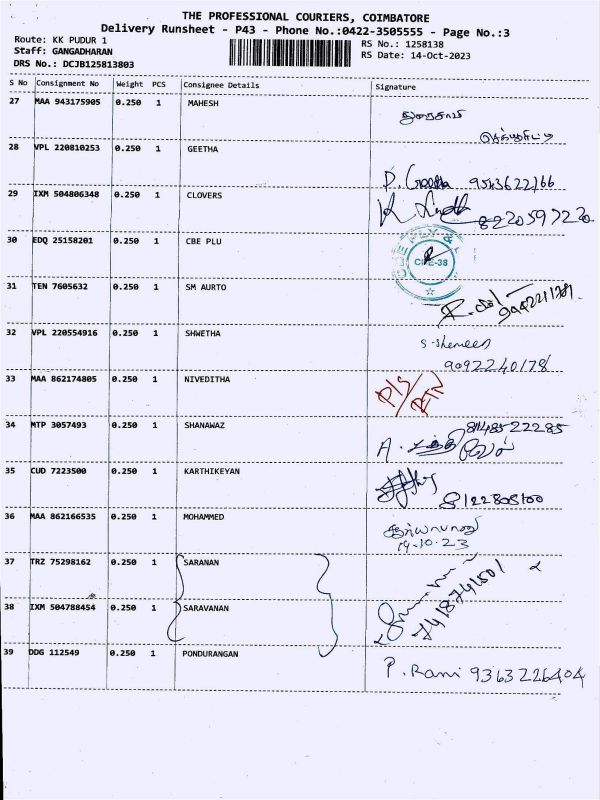 THE PROFESSIONAL COURIERS, COIMBATORE
Delivery Runsheet - P43 - Phone No.:0422-3505555 - Page No.:3
Route: KK PUDUR 1
Staff: GANGADHARAN
DRS No.: DCJB125813803
RS No.: 1258138
RS Date: 14-Oct-2023
S No Consignment No Weight PCS Consignee Details Signature
27 MAA 943175905 0.250 1 MAHESH
28 VPL 220810253 0.250 1 GEETHA
D. Geetha
29 IXM 504806348 0.250 1 CLOVERS
8220597220
30 EDQ 25158201 0.250 1 CBE PLU
CBE-38
31 TEN 7605632 0.250 1 SM AURTO
32 VPL 220554916 0.250 1 SHWETHA
9092240178
33 MAA 862174805 0.250 1 NIVEDITHA
P/S
RTN
34 MTP 3057493 0.250 1 SHANAWAZ
8148522285
A.
35 CUD 7223500 0.250 1 KARTHIKEYAN
8122805100
36 MAA 862166535 0.250 1 MOHAMMED
14-10-23
37 TRZ 75298162 0.250 1 SARANAN
38 IXM 504788454 0.250 1 SARAVANAN
7418741501
39 DDG 112549 0.250 1 PONDURANGAN
P. Rani 9363226404